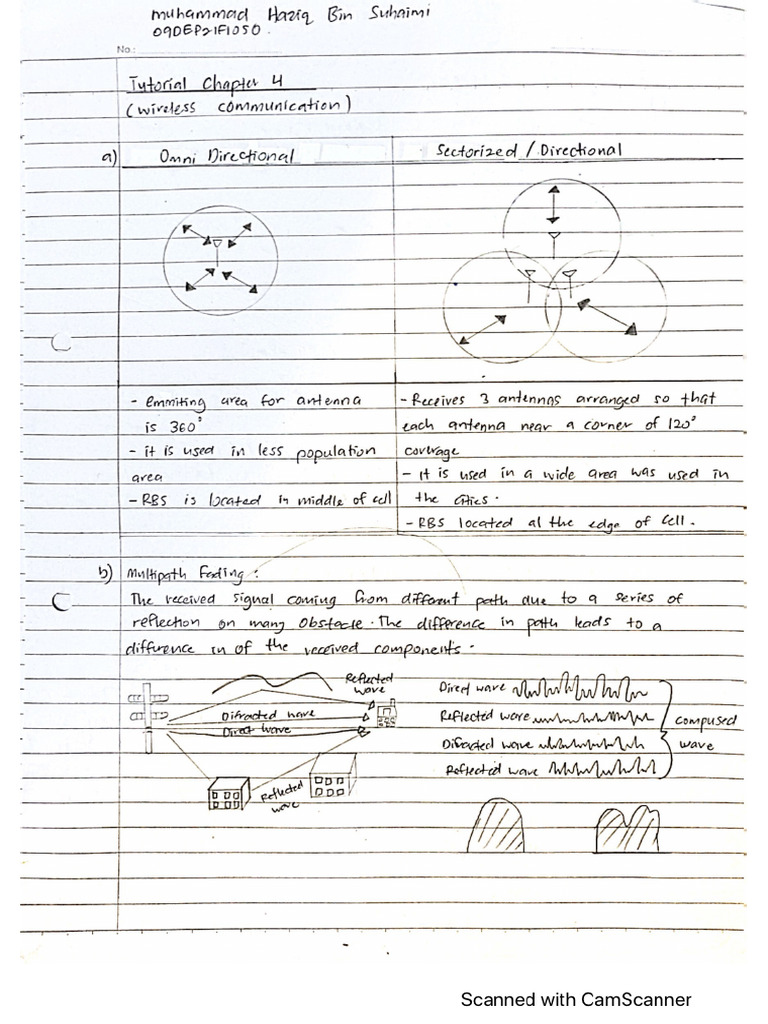 muhammad Haziq Bin Suhaimi
09DEP21F1050.
No.:
Tutorial Chapter 4
(wireless communication)
a) Omni Directional
Sectorized / Directional
- emmiting area for antenna
is 360°
- it is used in less population
area
- RBS is located in middle of cell
- Receives 3 antennas arranged so that
each antenna near a corner of 120°
coverage
- It is used in a wide area was used in
the cities.
- RBS located at the edge of cell.
b) Multipath Fading :
The received signal coming from different path due to a series of
reflection on many obstacle. The difference in path leads to a
difference in of the received components.
Reflected
wave
Difracted wave
Direct wave
Reflected
wave
Direct wave
Reflected wave
Difracted wave
Reflected wave
compused
wave
Scanned with CamScanner